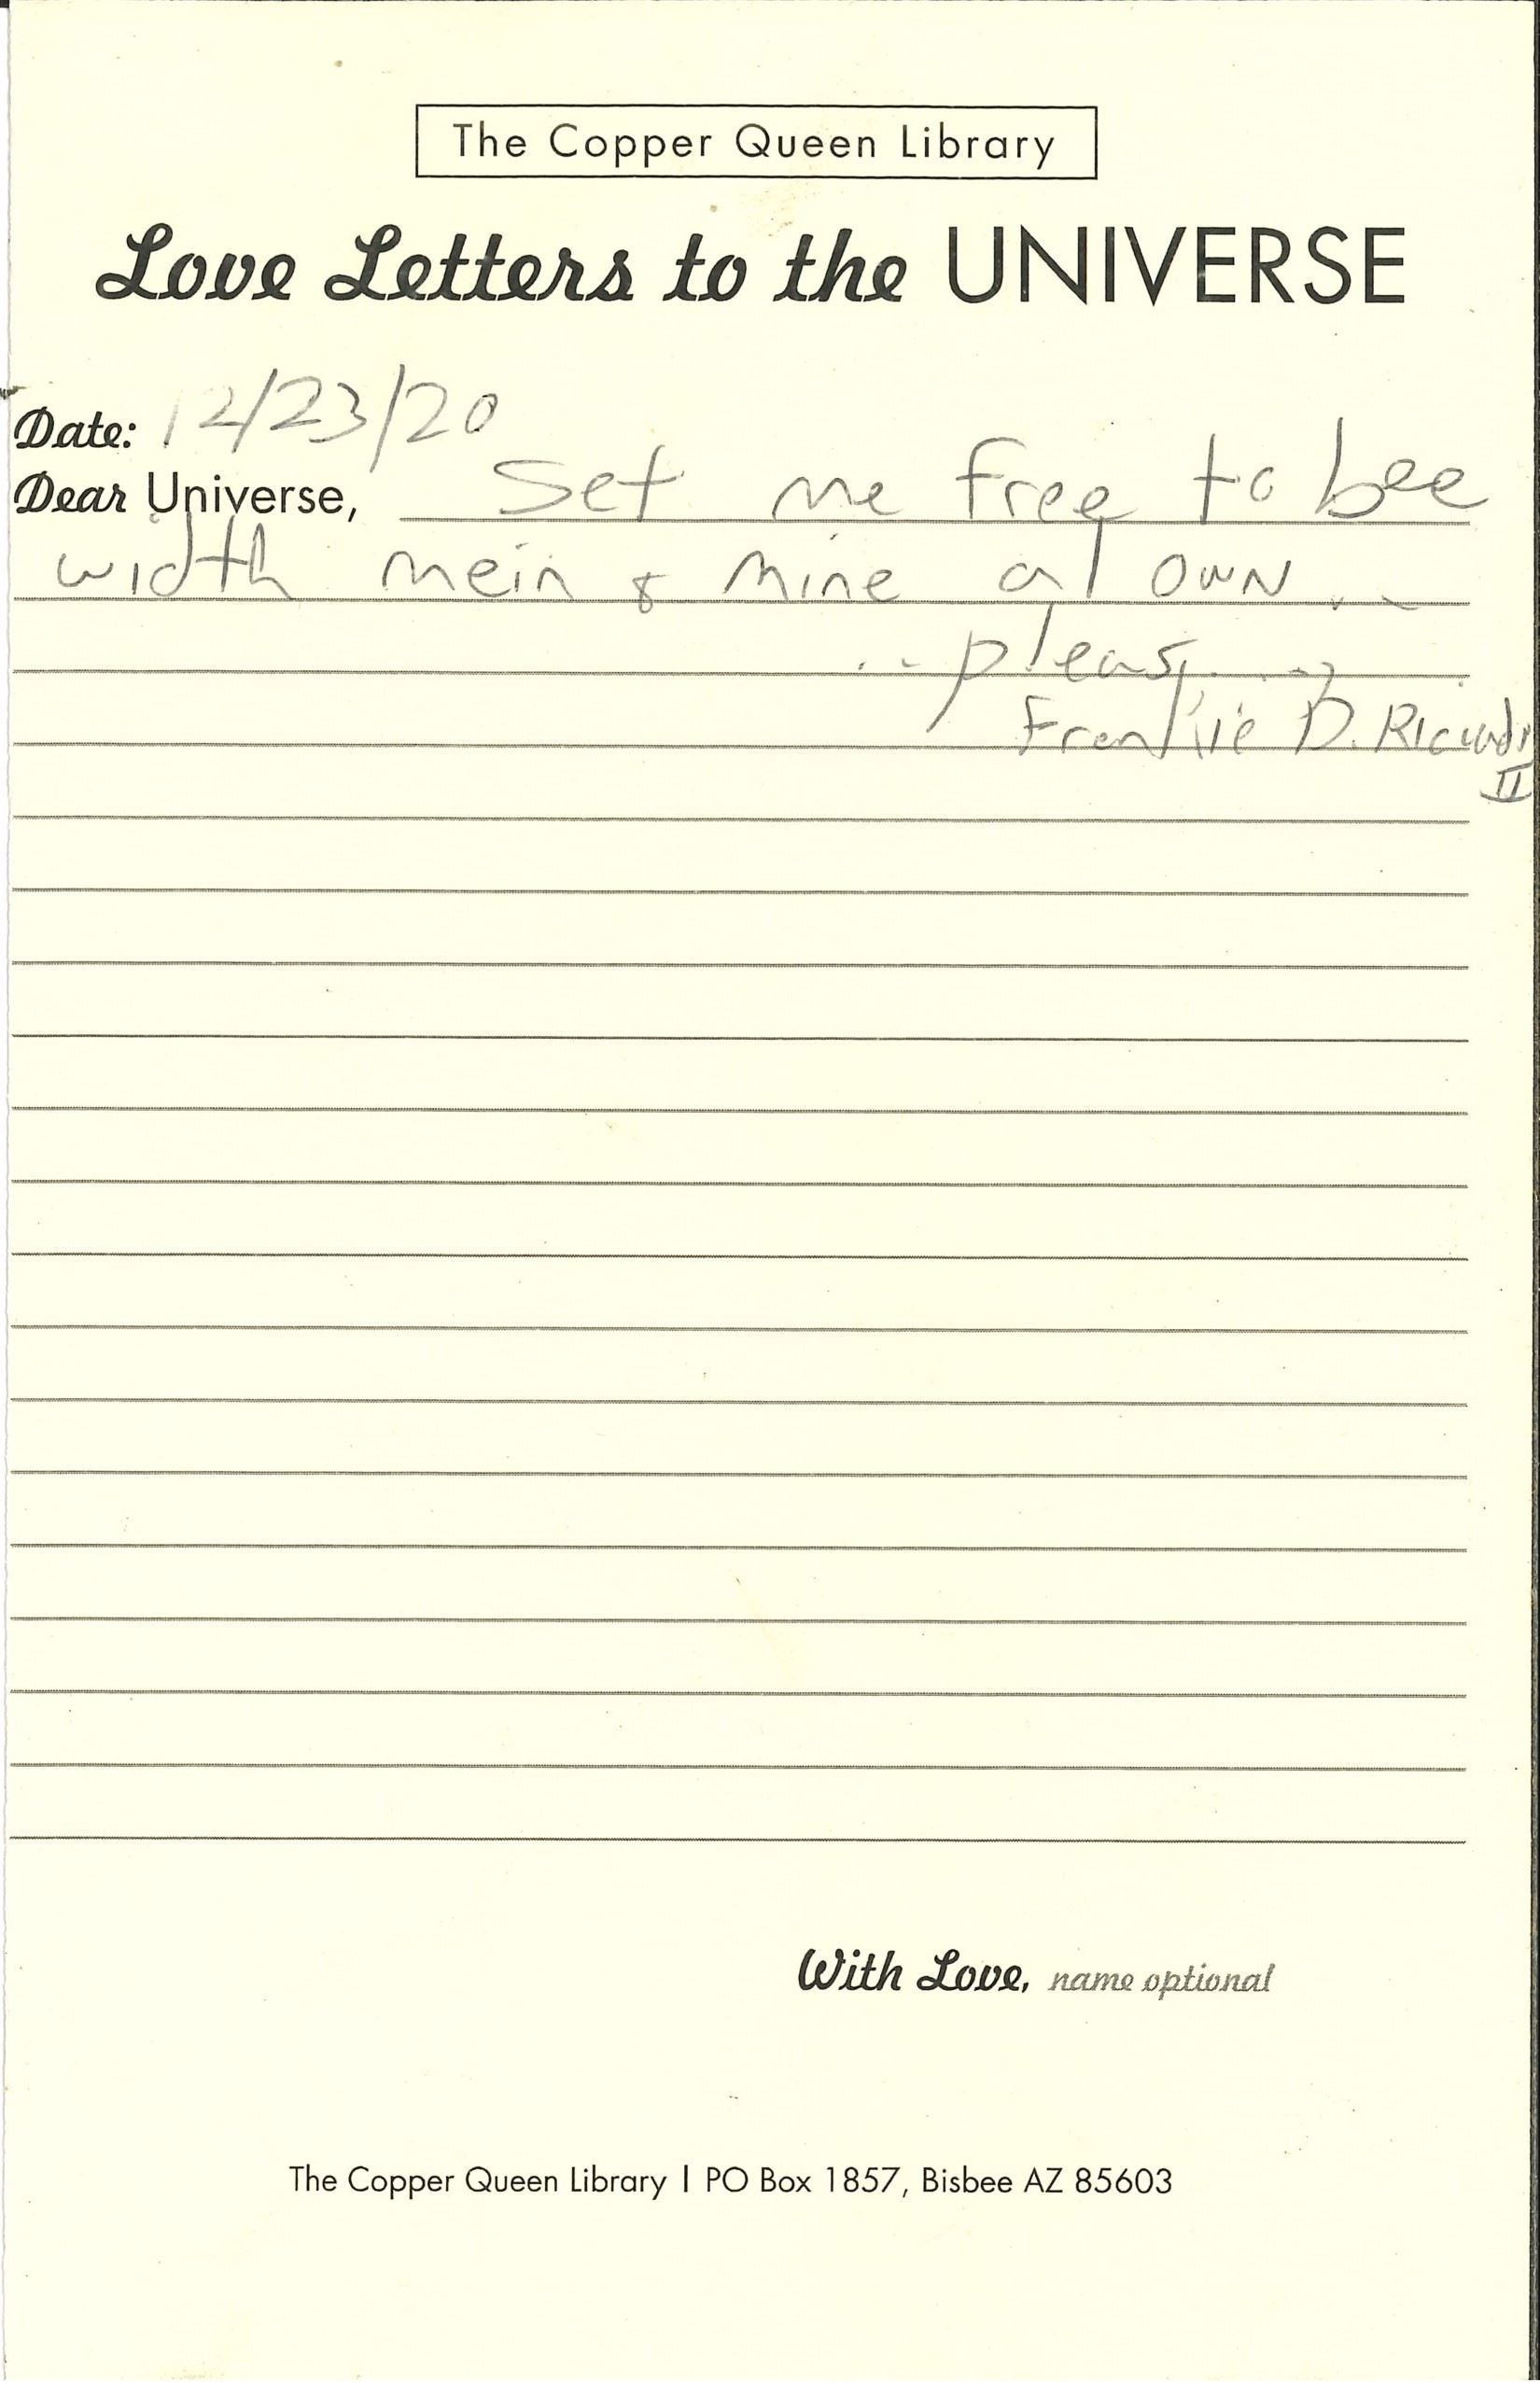 The Copper Queen Library
Love Letters to the UNIVERSE
Date: 12/23/20
Dear Universe, Set me free to bee
width mein & mine al own ..
.. pleas
Frankie D.
II
With Love, name optional
The Copper Queen Library | PO Box 1857, Bisbee AZ 85603